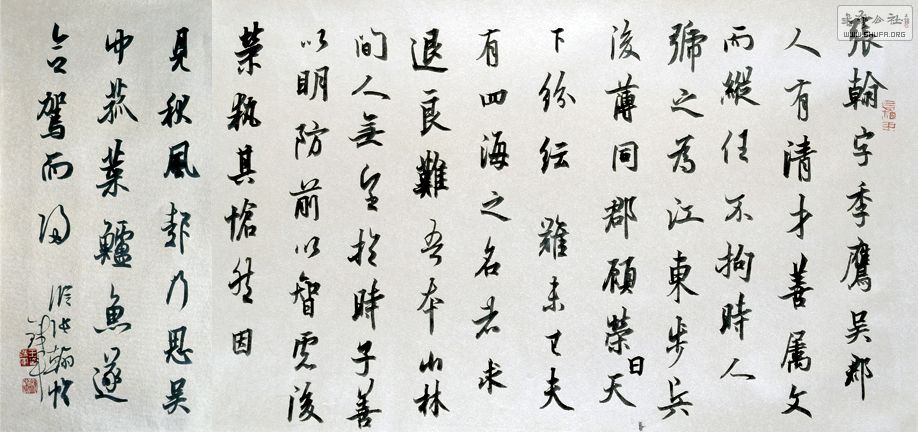 張翰字季鷹吳郡
人有清才善屬文
而縱任不拘時人
號之為江東步兵
後謂同郡顧榮曰天
下紛紜難未已夫
有四海之名者求
退良難吾本山林
間人無望於時子善
以明防前以智慮後
榮執其愴然因
見秋風起乃思吳
中菰菜鱸魚遂
命駕而歸
臨張翰帖
公社
WWW.SHUFA.ORG